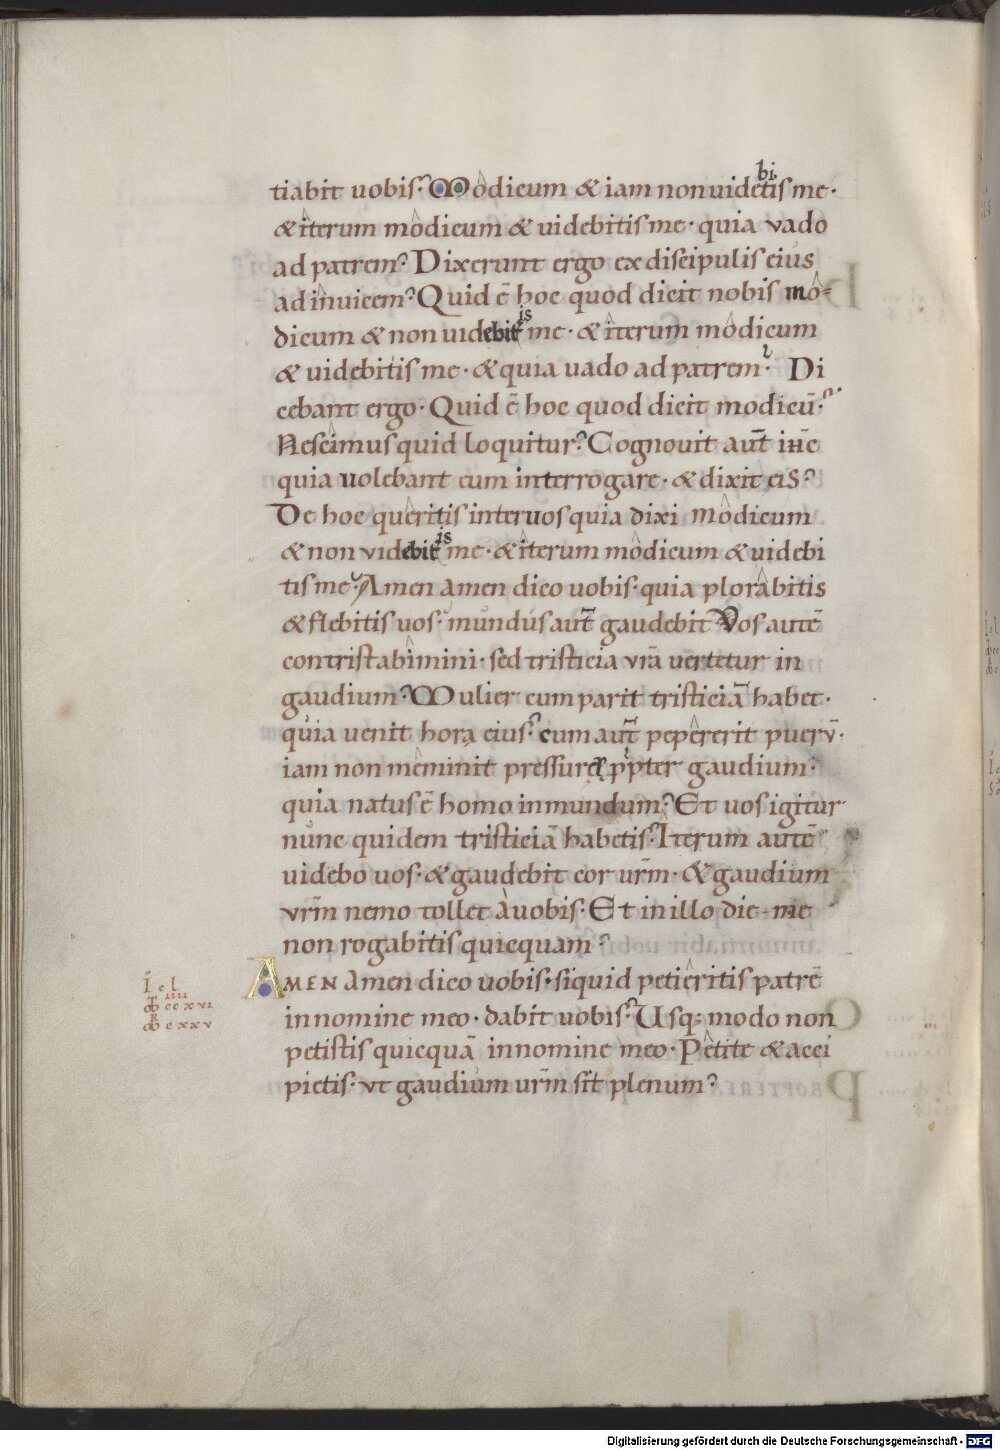 tiabit uobis. Modicum & iam non uidebitis me.
& iterum modicum & uidebitis me. quia vado
ad patrem? Dixerunt ergo ex discipulis eius
ad inuicem? Quid ē hoc quod dicit nobis mo-
dicum & non uidebitis me. & iterum modicum
& uidebitis me. & quia uado ad patrem. Di
cebant ergo. Quid ē hoc quod dicit modicū.
Nescimus quid loquitur? Cognouit aut̄ ihc̄
quia uolebant eum interrogare. & dixit eis?
De hoc queritis inter uos quia dixi modicum
& non videbitis me. & iterum modicum & uidebi
tis me. Amen amen dico uobis. quia plorabitis
& flebitis uos. mundus aut̄ gaudebit Vos autē
contristabimini. sed tristicia vr̄a uertetur in
gaudium? Mulier cum parit tristiciā habet.
quia uenit hora eius? cum aut̄ pepererit puerv̄.
iam non meminit pressurę ꝓpter gaudium.
quia natus ē homo in mundum? Et uos igitur
nunc quidem tristiciā habetis? Iterum autē
uidebo uos. & gaudebit cor ur̄m. & gaudium
vr̄m nemo tollet a uobis. Et in illo die me
non rogabitis quicquam?
AMEN amen dico uobis. siquid petieritis patrē
in nomine meo. dabit uobis? Usq; modo non
petistis quicquā in nomine meo. Petite & acci
pietis. vt gaudium ur̄m sit plenum?
Digitalisierung gefördert durch die Deutsche Forschungsgemeinschaft - DFG